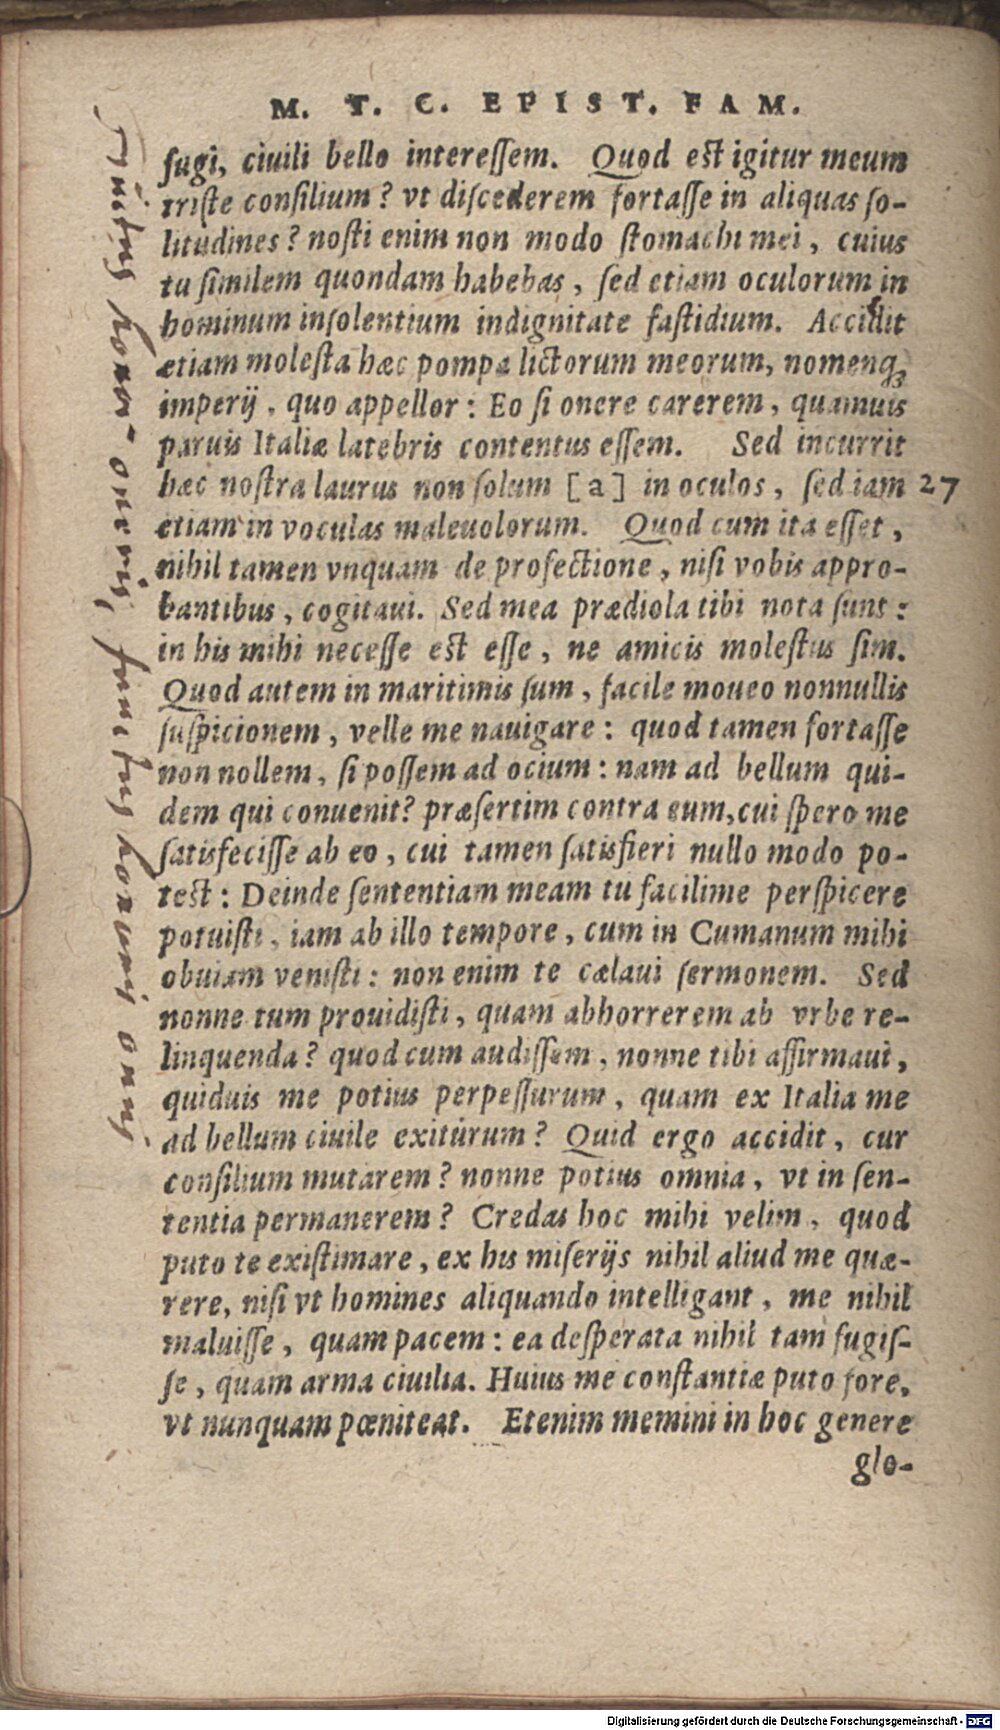 M. T. C. EPIST. FAM.
fugi, ciuili bello interessem. Quod est igitur meum
triste consilium? vt discederem fortasse in aliquas so-
litudines? nosti enim non modo stomachi mei, cuius
tu similem quondam habebas, sed etiam oculorum in
hominum insolentium indignitate fastidium. Accidit
etiam molesta hæc pompa lictorum meorum, nomenq;
imperij, quo appellor: Eo si onere carerem, quamuis
paruis Italiæ latebris contentus essem. Sed incurrit
hæc nostra laurus non solum [a] in oculos, sed iam 27
etiam in voculas maleuolorum. Quod cum ita esset,
nihil tamen vnquam de profectione, nisi vobis appro-
bantibus, cogitaui. Sed mea prædiola tibi nota sunt:
in his mihi necesse est esse, ne amicis molestus sim.
Quod autem in maritimis sum, facile moueo nonnullis
suspicionem, velle me nauigare: quod tamen fortasse
non nollem, si possem ad ocium: nam ad bellum qui-
dem qui conuenit? præsertim contra eum, cui spero me
satisfecisse ab eo, cui tamen satisfieri nullo modo po-
test: Deinde sententiam meam tu facilime perspicere
potuisti, iam ab illo tempore, cum in Cumanum mihi
obuiam venisti: non enim te cælaui sermonem. Sed
nonne tum prouidisti, quam abhorrerem ab vrbe re-
linquenda? quod cum audissem, nonne tibi affirmaui,
quiduis me potius perpessurum, quam ex Italia me
ad bellum ciuile exiturum? Quid ergo accidit, cur
consilium mutarem? nonne potius omnia, vt in sen-
tentia permanerem? Credas hoc mihi velim, quod
puto te existimare, ex his miserijs nihil aliud me quæ-
rere, nisi vt homines aliquando intelligant, me nihil
maluisse, quam pacem: ea desperata nihil tam fugis-
se, quam arma ciuilia. Huius me constantiæ puto fore,
vt nunquam pœniteat. Etenim memini in hoc genere
glo-
Digitalisierung gefördert durch die Deutsche Forschungsgemeinschaft - DFG